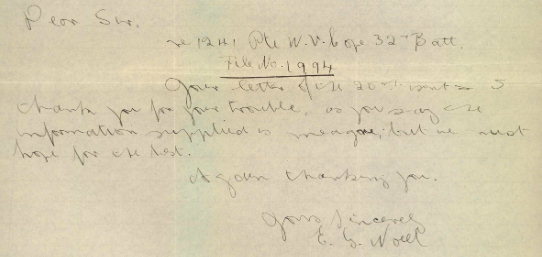 Dear Sir.
re 1241 Pte W. V. Cope 32nd Batt.
File No. 1994
Your letter of the 20th inst. I
thank you for your trouble, as you say the
information supplied is meagre, but we must
hope for the best.
Again thanking you.
Yours Sincerely
E. G. Noell